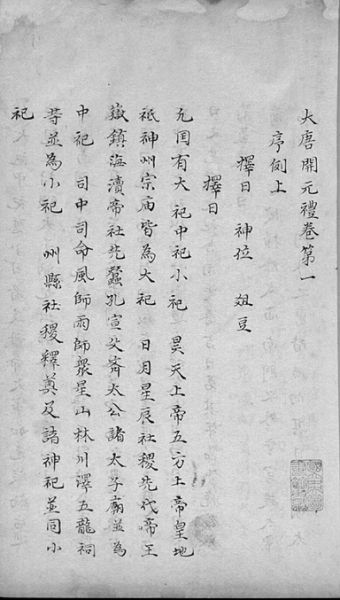 大唐開元禮卷第一
序例上
擇日 神位 俎豆
擇日
凡囯有大祀中祀小祀 昊天上帝五方上帝皇地
祇神州宗庙皆為大祀 日月星辰社稷先代帝王
嶽鎮海瀆帝社先蠶孔宣父齊太公諸太子廟並為
中祀 司中司命風師雨師衆星山林川澤五龍祠
等並為小祀 州縣社稷釋奠及諸神祀並同小
祀